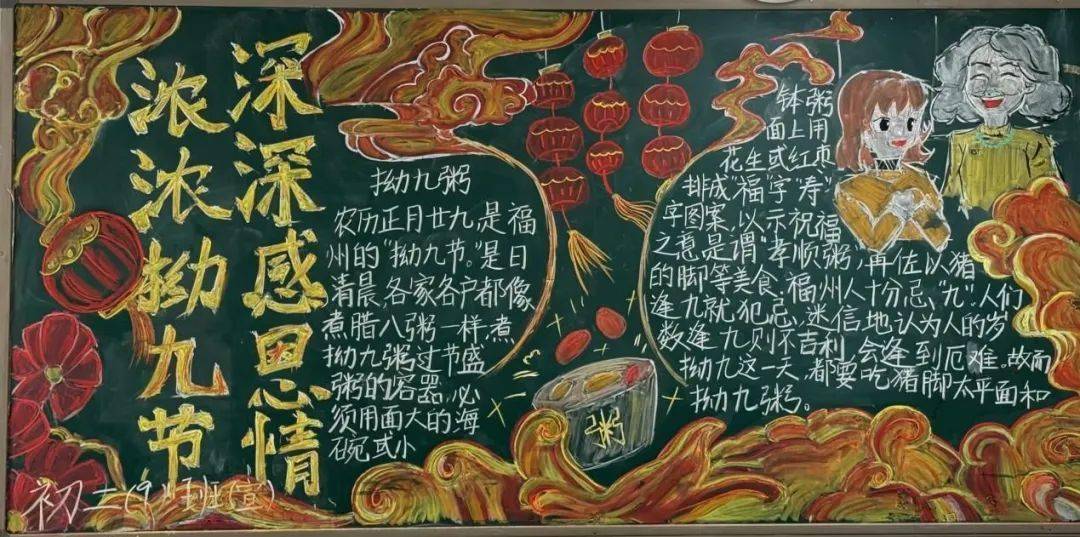 浓浓拗九节
深深感恩情
拗九粥
农历正月廿九,是福
州的“拗九节。”是日
清晨,各家各户都像
煮腊八粥一样煮
拗九粥过节盛
粥的容器,必
须用面大的海
碗或小
钵粥
面上用
花生或红枣
排成“福”字“寿”
字图案,以示祝福
之意是谓“孝顺粥,再佐以猪
的脚等美食.福州人十分忌、“九”.人们
逢九就犯忌,迷信地认为人的岁
数逢九则不吉利,会逢到厄难。故而
拗九这一天,都要吃猪脚太平面和
拗九粥。
粥
初二(9)班(宣)